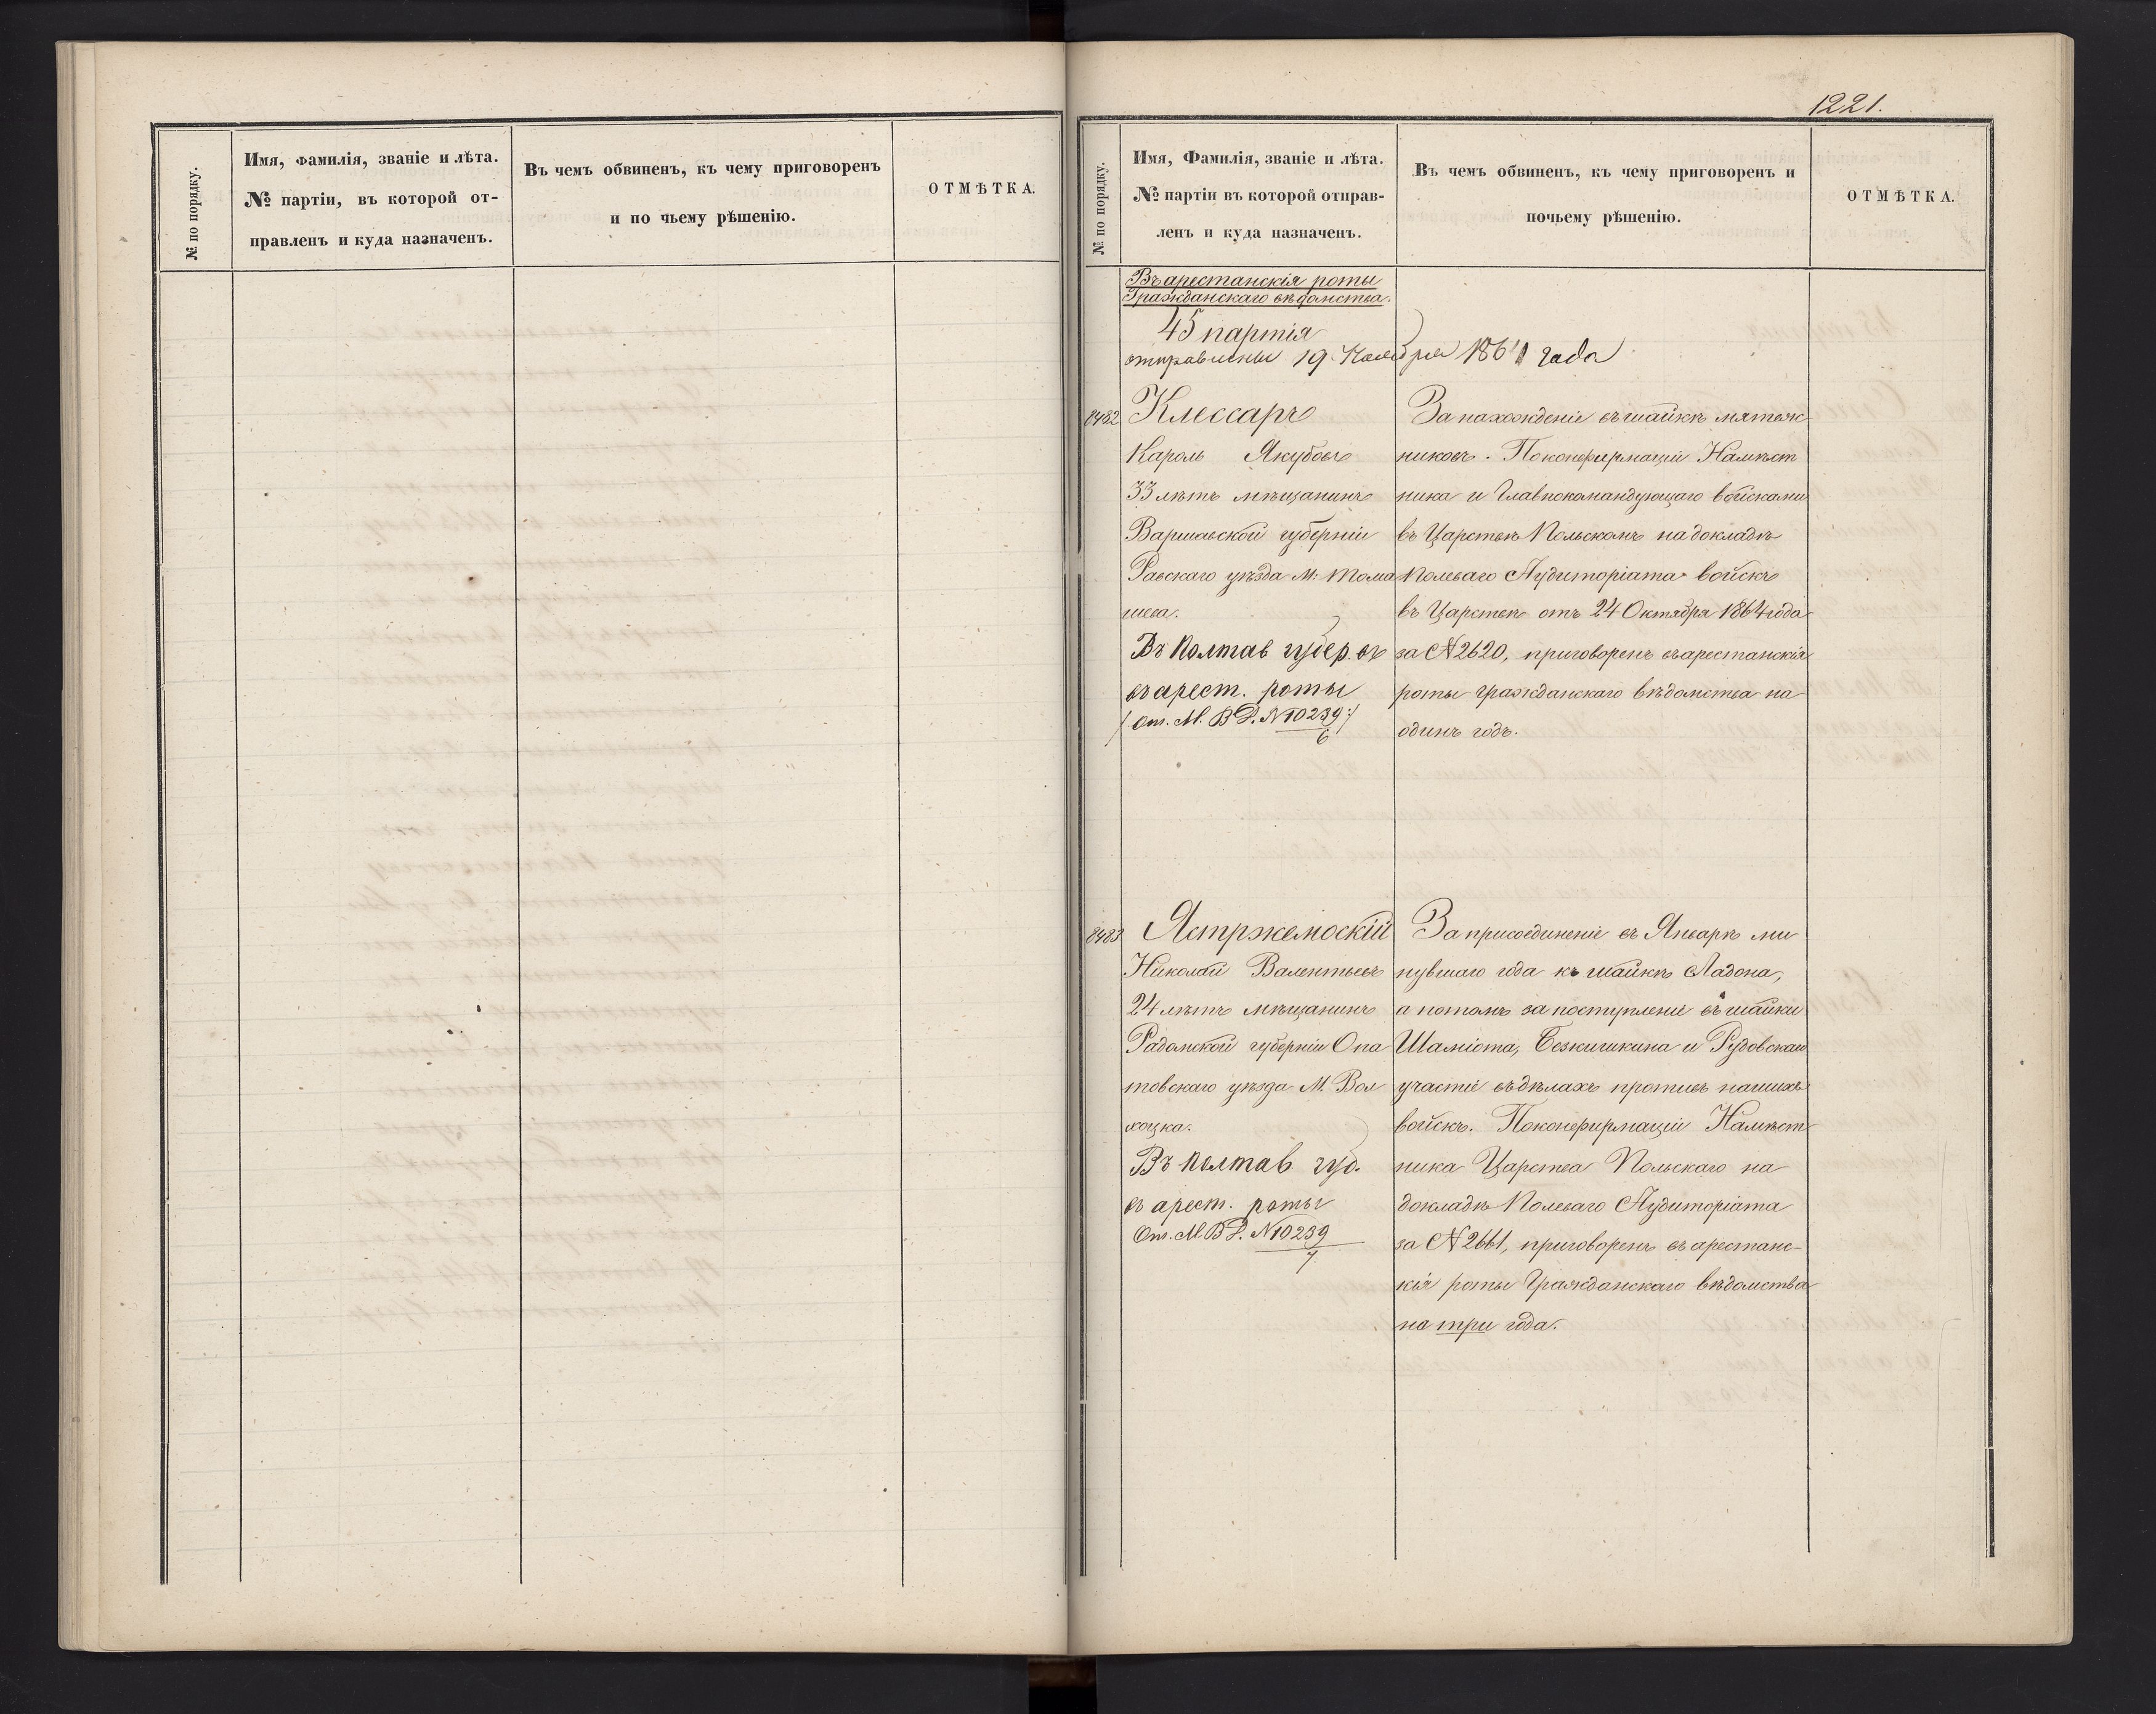 № по порядку.
Имя, фамилія, званіе и лѣта.
№ партіи, въ которой от-
правленъ и куда назначенъ.
Въ чемъ обвиненъ, къ чему приговоренъ
и по чьему рѣшенію.
ОТМѢТКА.
1221.
№ по порядку.
Имя, Фамилія, званіе и лѣта.
№ партіи въ которой отправ-
ленъ и куда назначенъ.
Въ чемъ обвиненъ, къ чему приговоренъ и
почьему рѣшенію.
ОТМѢТКА.
Въ арестанскія роты
Гражданскаго вѣдомства.
45 партія
отправлены 19 Ноября 1864 года
8482
Клессаръ
Кароль Якубовъ
33 лѣтъ мѣщанинъ
Варшавской губерніи
Равскаго уѣзда М: Тома
шева.
Въ Полтав губер. въ
въ арест. роты
/ От. М. В Д. № 10239 :/
6
За нахожденіе въ шайкѣ мятеж
никовъ. По конфирмаціи Намѣст
ника и Главнокомандующаго войсками
въ Царствѣ Польскомъ на докладѣ
Полеваго Аудиторіата войскъ
въ Царствѣ отъ 24 Октября 1864 года
за № 2620, приговоренъ въ арестанскія
роты гражданскаго вѣдомства на
одинъ годъ.
8483
Ястржемоскій
Николай Валентьевъ
24 лѣтъ мѣщанинъ
Радомской губерніи Опа
товскаго уѣзда М. Вол
хоцка.
Въ Полтав. губ.
въ арест. роты
От. М. В Д. № 10239
7
За присоединеніе въ Январѣ ми
нувшаго года къ шайкѣ Ладона,
а потомъ за поступленіе въ шайки
Шаміота, Безкишкина и Рудовскаго
участіе въ дѣлахъ противъ нашихъ
войскъ. По конфирмаціи Намѣст
ника Царства Польскаго на
докладѣ Полеваго Аудиторіата
за № 2661, приговоренъ въ арестанс-
кія роты Гражданскаго вѣдомства
на три года.